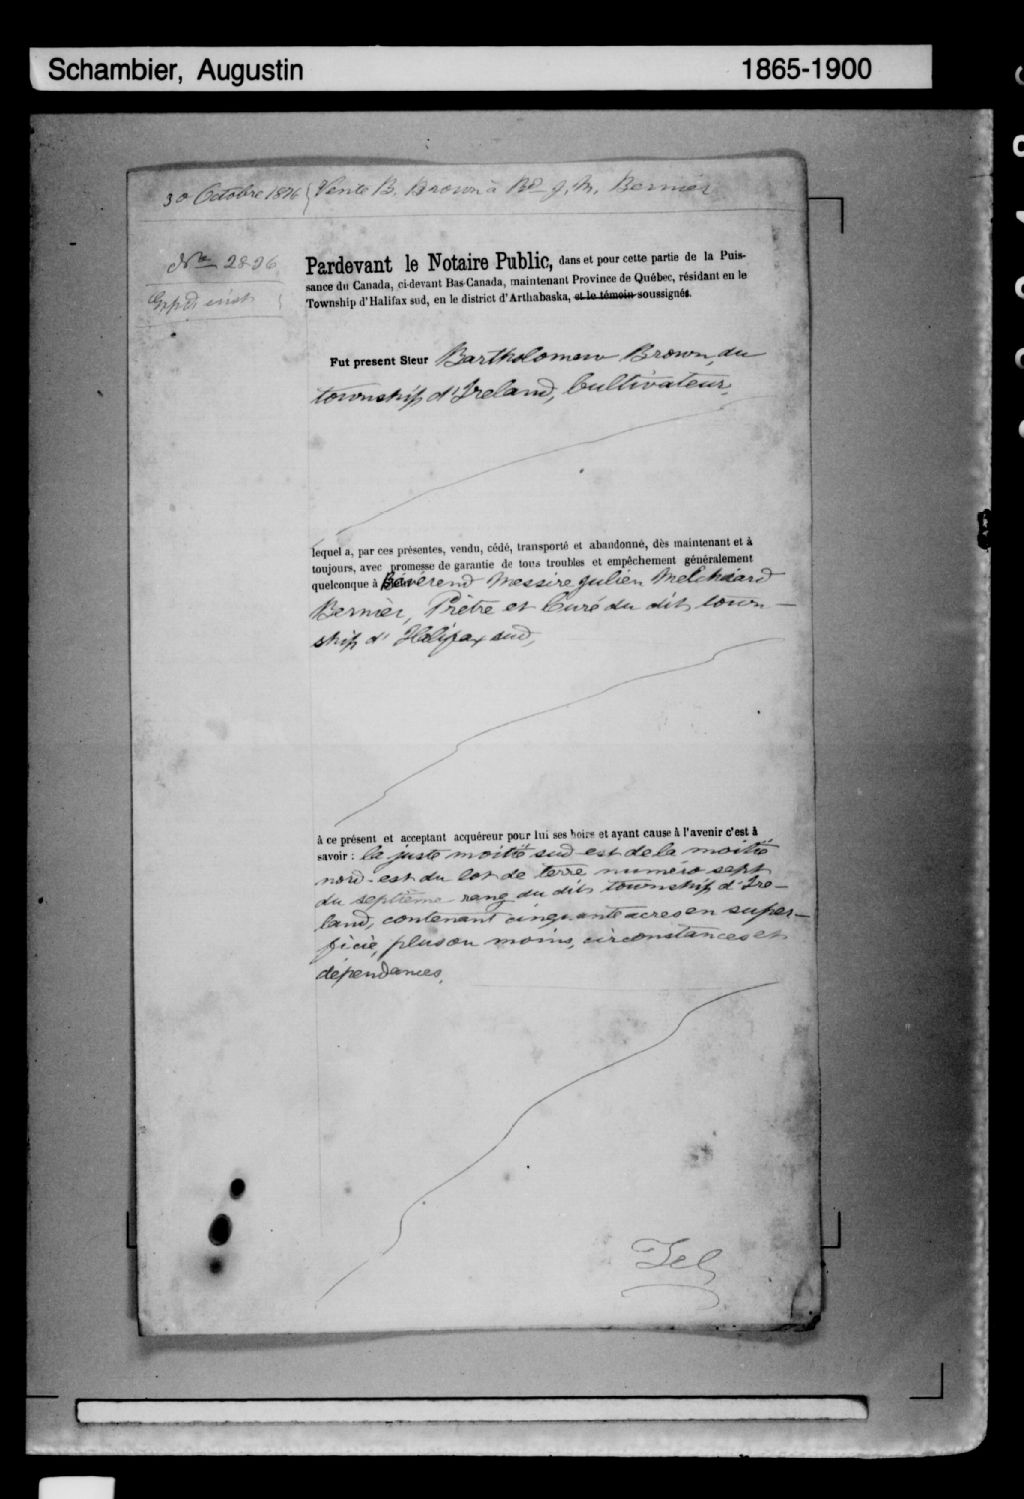 Schambier, Augustin 1865-1900
30 Octobre 1876 Vente B. Brown à Rd J. M. Bernier
No 2896
Pardevant le Notaire Public, dans et pour cette partie de la Puis-
sance du Canada, ci-devant Bas-Canada, maintenant Province de Québec, résidant en le
Township d'Halifax sud, en le district d'Arthabaska, et le témoin soussignés.
Fut present Sieur Bartholomew Brown, du
township d'Ireland, Cultivateur,
lequel a, par ces présentes, vendu, cédé, transporté et abandonné, dès maintenant et à
toujours, avec promesse de garantie de tous troubles et empêchement généralement
quelconque à Révérend Messire Julien Melchiard
Bernier, Prêtre et Curé du dit town-
ship d'Halifax sud,
à ce présent et acceptant acquéreur pour lui ses hoirs et ayant cause à l'avenir c'est à
savoir : la juste moitié sud-est de la moitié
nord-est du lot de terre numéro sept
du septième rang du dit township d'Ire-
land, contenant cinquante acres en super-
ficie, plus ou moins, circonstances et
dépendances.